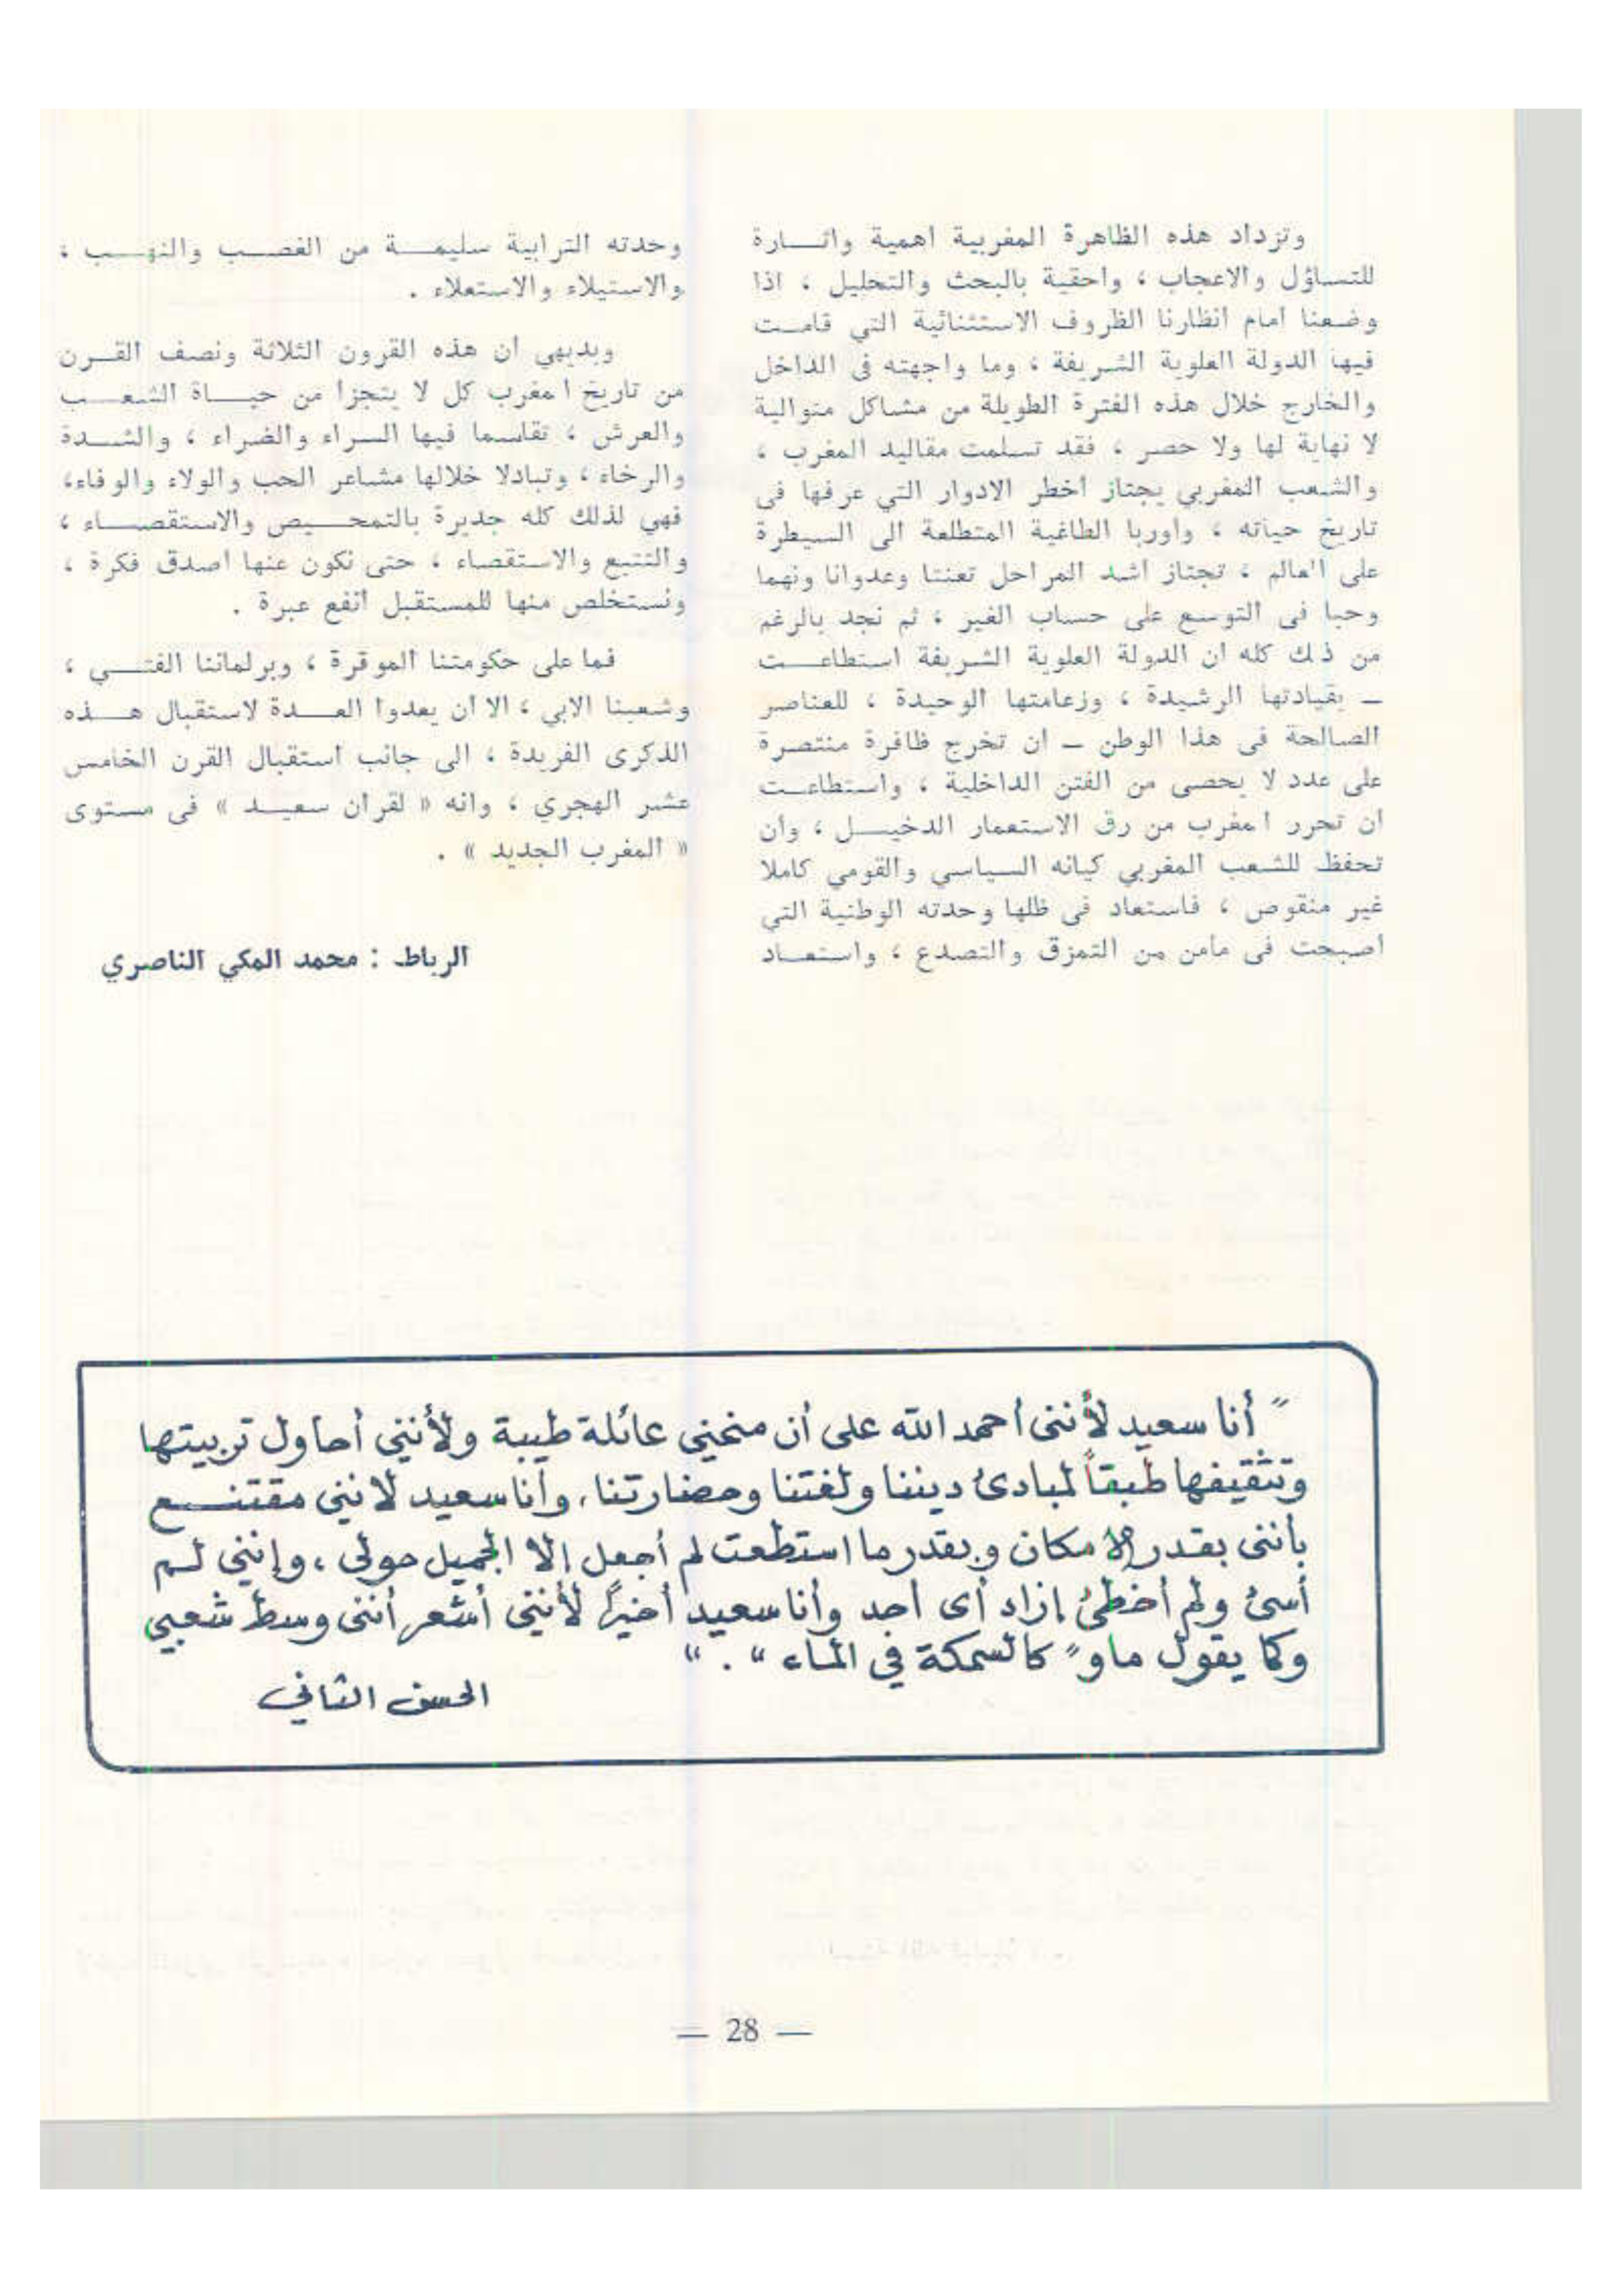 وتزداد هذه الظاهرة المغربية اهمية واثـــارة
للتساؤل والاعجاب ، واحقية بالبحث والتحليل ، اذا
وضعنا امام انظارنا الظروف الاستثنائية التي قامــت
فيها الدولة العلوية الشريفة ، وما واجهته فى الداخل
والخارج خلال هذه الفترة الطويلة من مشاكل متوالية
لا نهاية لها ولا حصر ، فقد تسلمت مقاليد المغرب ،
والشعب المغربي يجتاز اخطر الادوار التي عرفها فى
تاريخ حياته ، واوربا الطاغية المتطلعة الى السيطرة
على العالم ، تجتاز اشد المراحل تعنتا وعدوانا ونهما
وحبا فى التوسع على حساب الغير ، ثم نجد بالرغم
من ذلك كله ان الدولة العلوية الشريفة استطاعـــت
ـ بقيادتها الرشيدة ، وزعامتها الوحيدة ، للعناصر
الصالحة فى هذا الوطن ـ ان تخرج ظافرة منتصرة
على عدد لا يحصى من الفتن الداخلية ، واستطاعــت
ان تحرر المغرب من رق الاستعمار الدخيـــل ، وان
تحفظ للشعب المغربي كيانه السياسي والقومي كاملا
غير منقوص ، فاستعاد فى ظلها وحدته الوطنية التي
اصبحت فى مأمن من التمزق والتصدع ، واستعــاد
وحدته الترابية سليمـــة من الغصــب والنهــب ،
والاستيلاء والاستعلاء .
وبديهي ان هذه القرون الثلاثة ونصف القــرن
من تاريخ المغرب كل لا يتجزا من حيـــاة الشعـــب
والعرش ، تقاسما فيها السراء والضراء ، والشــدة
والرخاء ، وتبادلا خلالها مشاعر الحب والولاء والوفاء،
فهي لذلك كله جديرة بالتمحـــيص والاستقصـــاء ،
والتتبع والاستقصاء ، حتى نكون عنها اصدق فكرة ،
ونستخلص منها للمستقبل انفع عبرة .
فما على حكومتنا الموقرة ، وبرلماننا الفتـــي ،
وشعبنا الابي ، الا ان يعدوا العــدة لاستقبال هــذه
الذكرى الفريدة ، الى جانب استقبال القرن الخامس
عشر الهجري ، وانه « لقران سعيــد » فى مستوى
« المغرب الجديد » .
الرباط : محمد المكي الناصري
" أنا سعيد لأننى أحمد الله على أن منحنى عائلة طيبة ولأننى أحاول تربيتها
وتثقيفها طبقاً لمبادئ ديننا ولغتنا وحضارتنا، وأنا سعيد لاننى مقتنـــع
بأننى بقدر الامكان وبقدر ما استطعت لم أجعل إلا الجميل حولى ، وإننى لـم
أسئ ولم أخطئ إزاد أى أحد وأنا سعيد أخيراً لأننى أشعر أننى وسط شعبي
وكما يقول ماو " كالسمكة في الماء " . "
الحسن الثاني
— 28 —